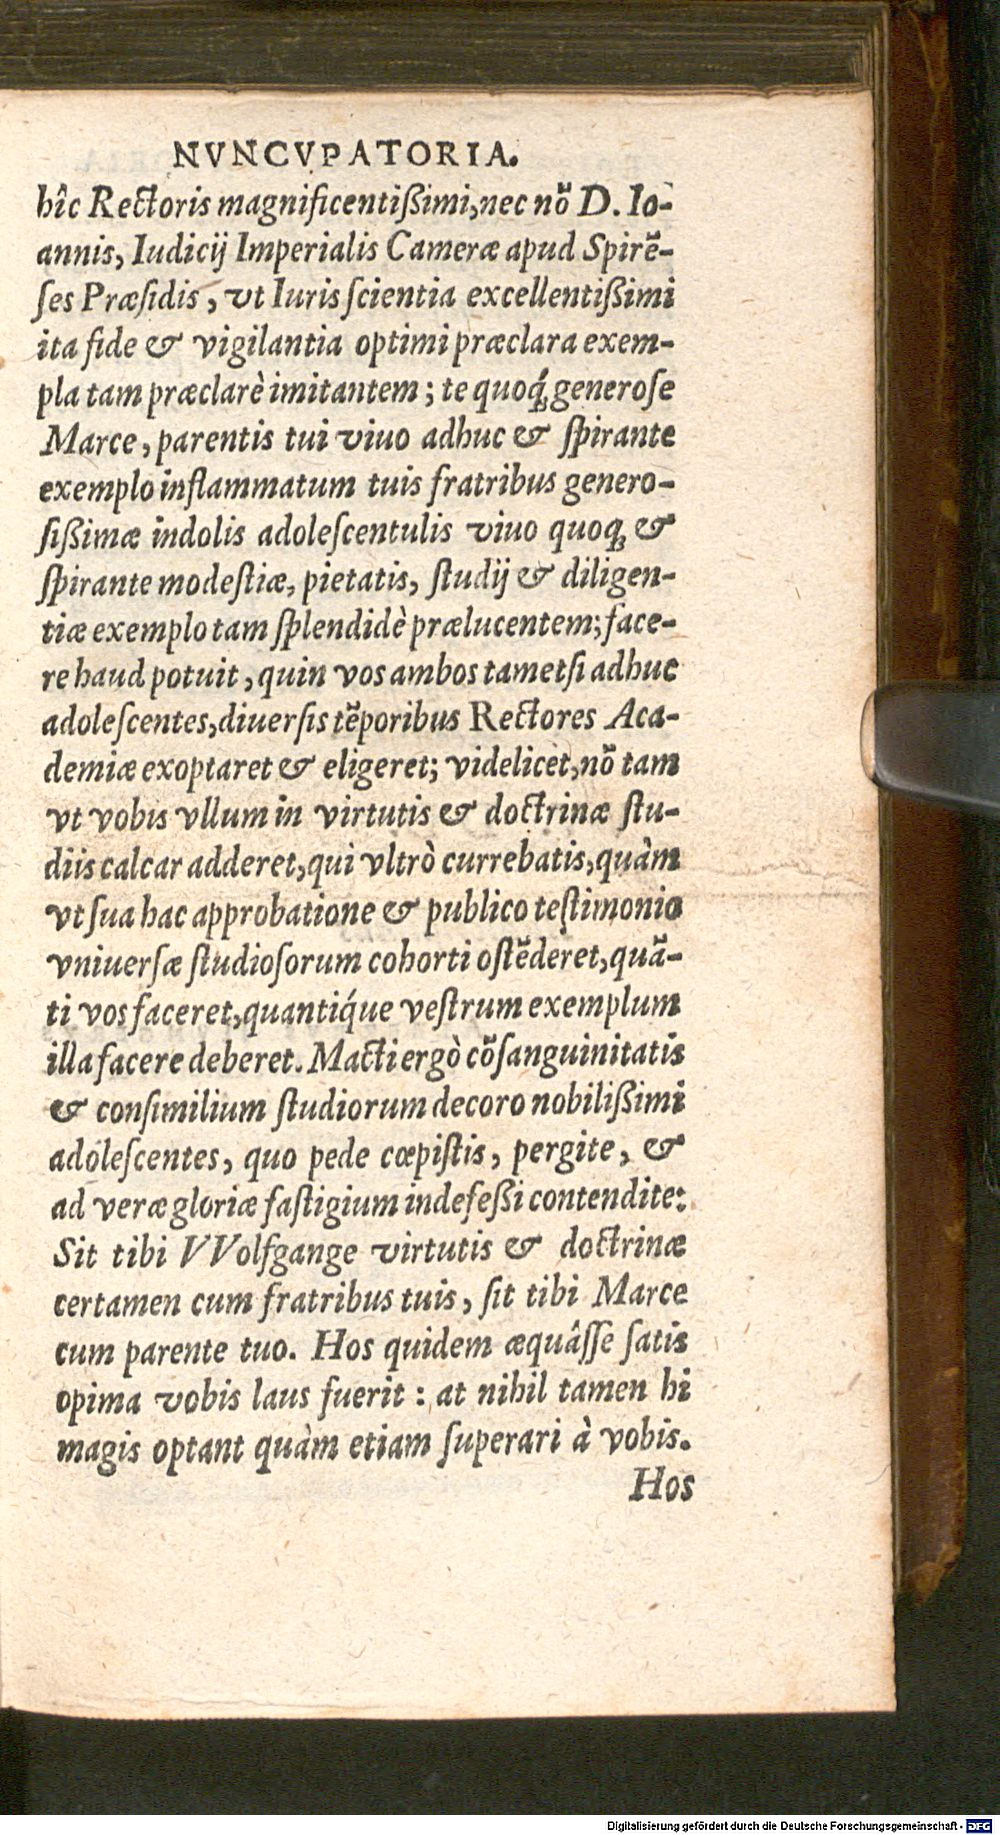 NVNCVPATORIA.
hîc Rectoris magnificentißimi, nec nõ D. Io-
annis, Iudicij Imperialis Cameræ apud Spirẽ-
ſes Præſidis, vt Iuris ſcientia excellentißimi
ita fide & vigilantia optimi præclara exem-
pla tam præclarè imitantem; te quoq́; generoſe
Marce, parentis tui viuo adhuc & ſpirante
exemplo inflammatum tuis fratribus genero-
ſißimæ indolis adoleſcentulis viuo quoq; &
ſpirante modeſtiæ, pietatis, ſtudij & diligen-
tiæ exemplo tam ſplendidè prælucentem; face-
re haud potuit, quin vos ambos tametſi adhuc
adoleſcentes, diuerſis tẽporibus Rectores Aca-
demiæ exoptaret & eligeret; videlicet, nõ tam
vt vobis vllum in virtutis & doctrinæ ſtu-
diis calcar adderet, qui vltrò currebatis, quàm
vt ſua hac approbatione & publico teſtimonio
vniuerſæ ſtudioſorum cohorti oſtẽderet, quã-
ti vos faceret, quantiq́ue veſtrum exemplum
illa facere deberet. Macti ergò cõſanguinitatis
& conſimilium ſtudiorum decoro nobilißimi
adoleſcentes, quo pede cœpiſtis, pergite, &
ad veræ gloriæ faſtigium indefeßi contendite:
Sit tibi VVolfgange virtutis & doctrinæ
certamen cum fratribus tuis, ſit tibi Marce
cum parente tuo. Hos quidem æquâſſe ſatis
opima vobis laus fuerit: at nihil tamen hi
magis optant quàm etiam ſuperari à vobis.
Hos
Digitalisierung gefördert durch die Deutsche Forschungsgemeinschaft - DFG